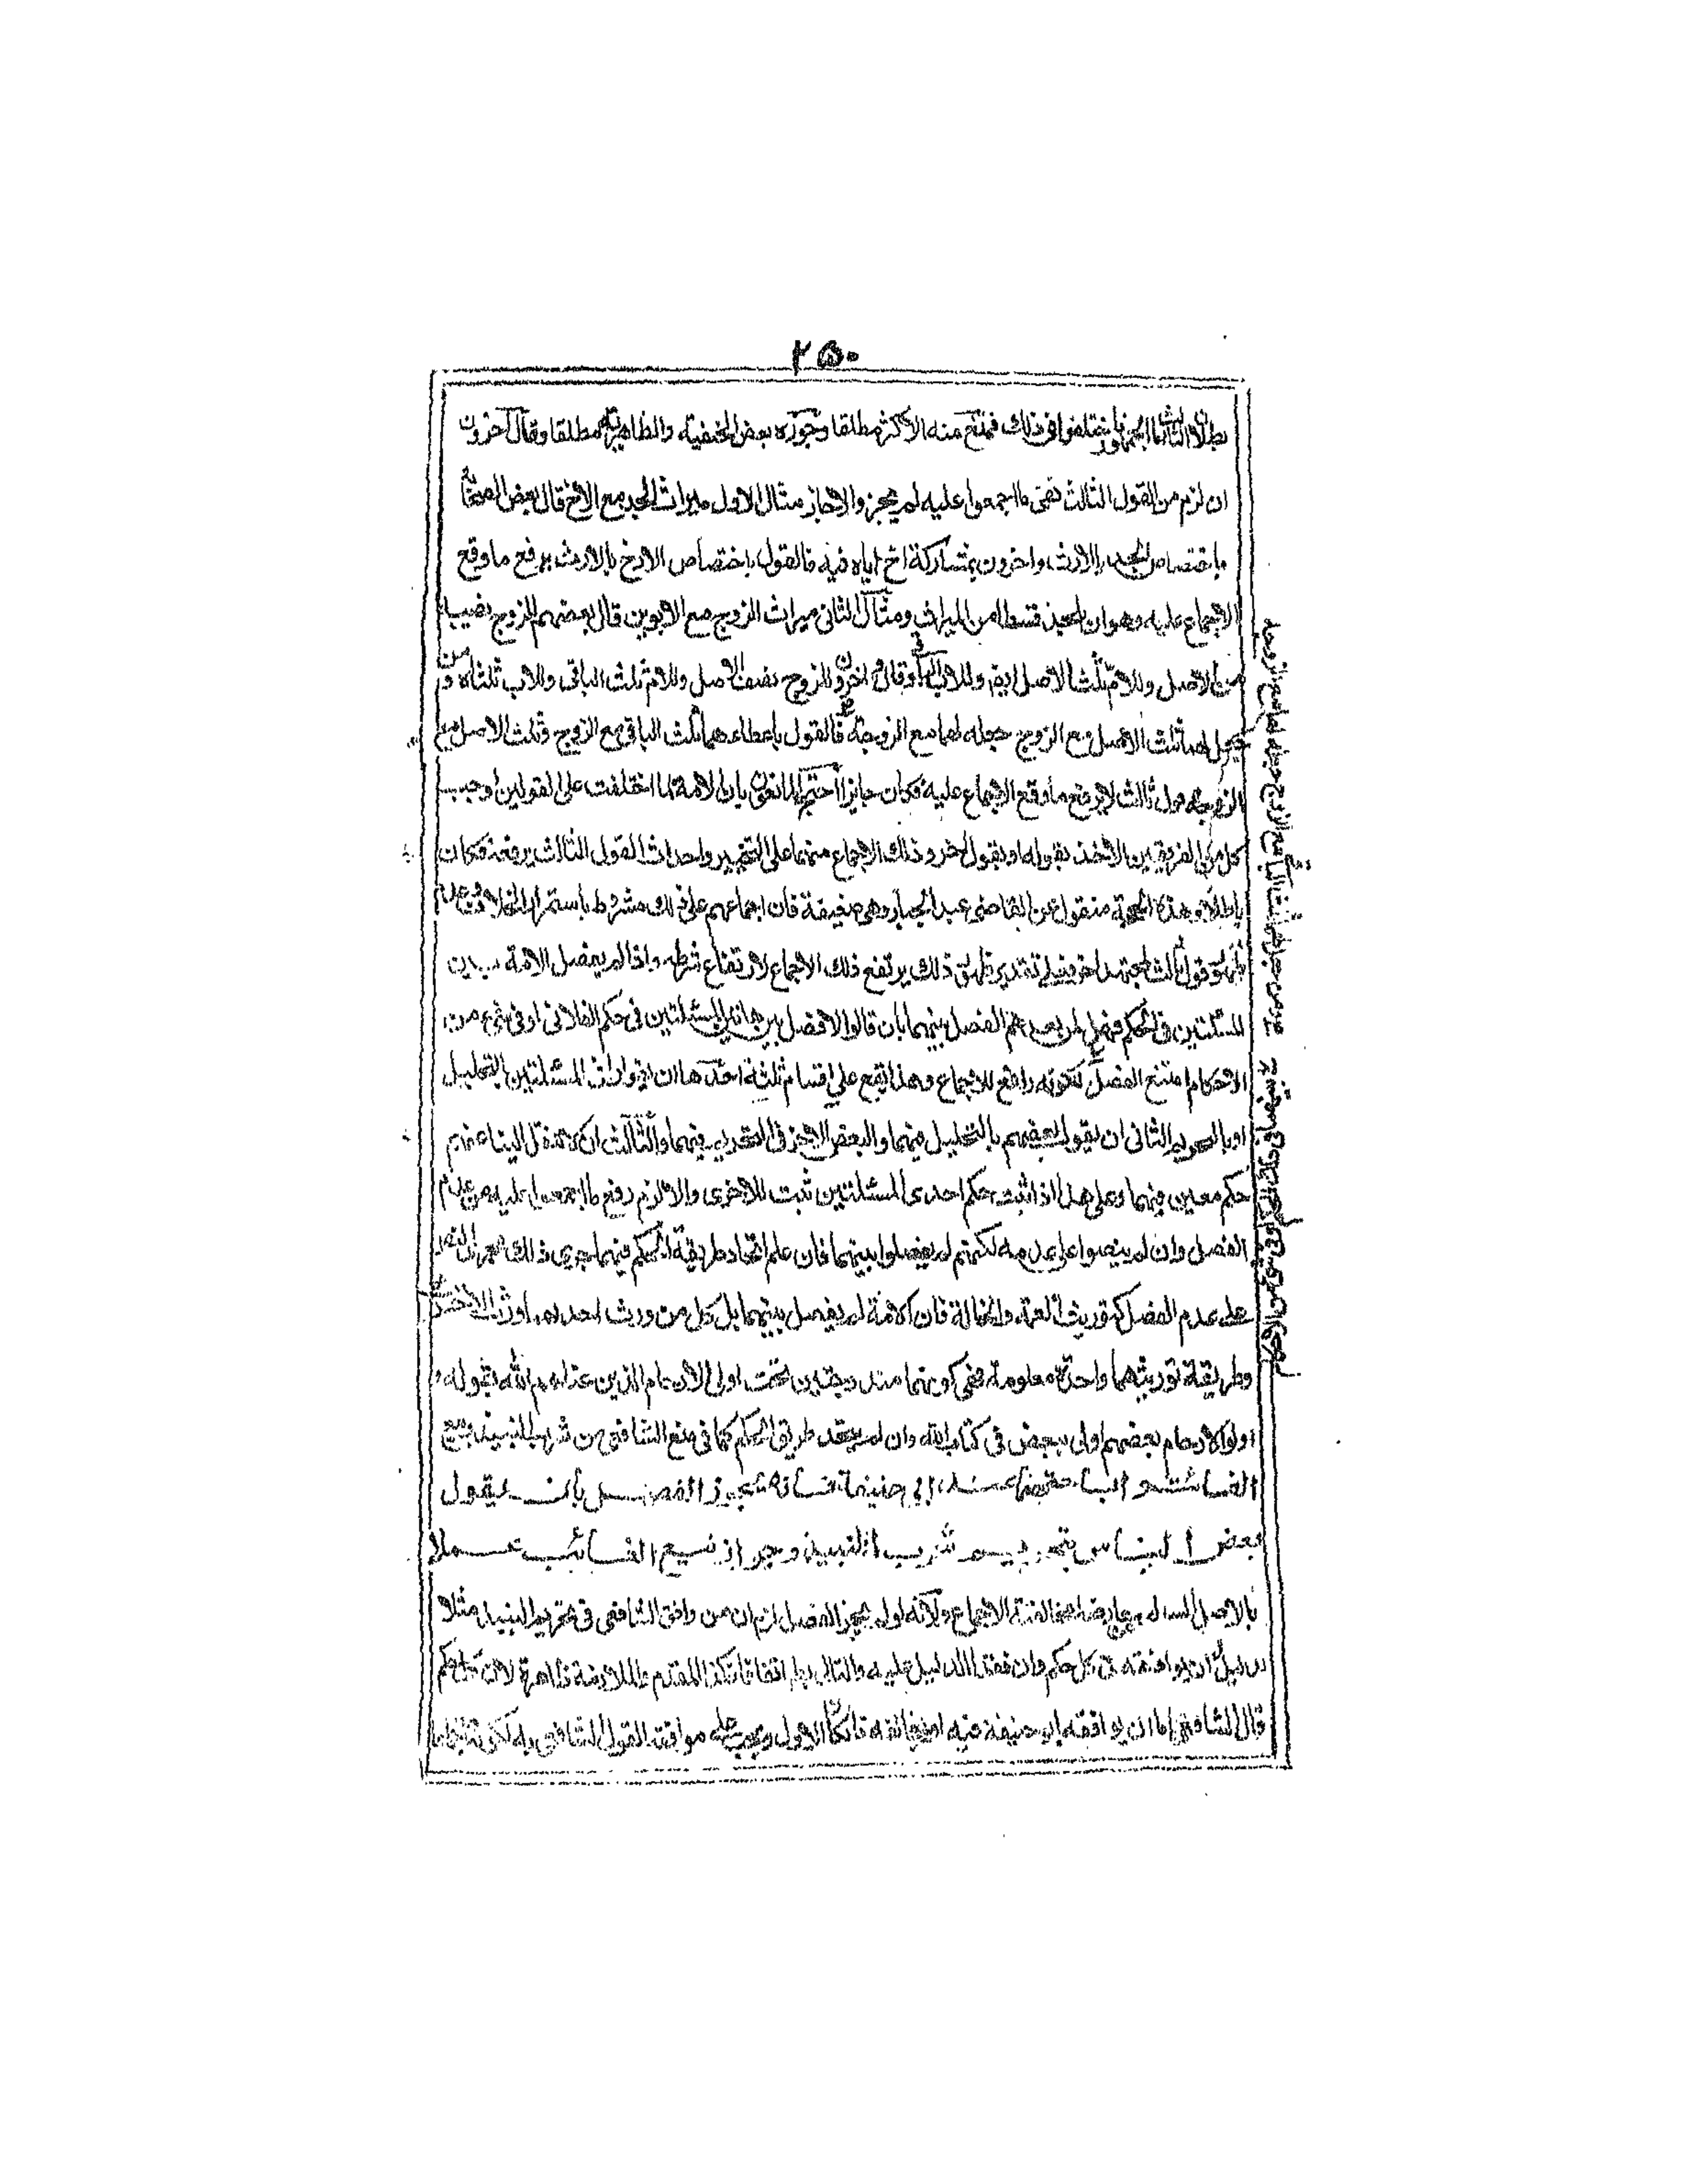 ٢٥٠
بطلان الثالث اختلفوا فى ذلك فمنع منه الاكثر مطلقا وجوزه بعض الحنفيه والظاهريه مطلقا وقال آخرون
ان لزم من القول الثالث نفى ما اجمعوا عليه لم يجز والا جاز مثال الاول ميراث الجد مع الاخ قال بعض الصحابة
باختصاص الجد بالارث واخرون بمشاركة اخ اياه فيه فالقول باختصاص الاخ بالارث يرفع ما وقع
الاجماع عليه وهو ان للجد قسطا من الميراث ومثال الثانى ميراث الزوج مع الابوين قال بعضهم للزوج نصيبا
من الاصل وللام ثلث الاصل ايضا وللاب الباقى وقال اخرون للزوج نصف الاصل وللام ثلث الباقى وللاب ثلثاه ومن
جعل لها ثلث الاصل مع الزوج جعله لها مع الزوجة فالقول باعطاءها ثلث الباقى مع الزوج وثلث الاصل مع
الزوجه قول ثالث لا يرفع ما وقع الاجماع عليه فكان جايزا احتج المانعون بان الامة لما اختلفت على القولين اوجب
كل من الفريقين الاخذ بقوله او بقول الاخر وذلك الاجماع منهما على التخيير واحداث القول الثالث يرفعه فكان
باطلا وهذه الحجة منقول عن القاضى عبد الجبار وهى ضعيفة فان اجماعهم على ذلك مشروط باستمرار الخلاف وعدم
ظهور قول ثالث لمجتهد اخر فبتقدير ظهور ذلك يرتفع ذلك الاجماع لارتفاع شرطه واذا لم يفصل الامة بين
المسئلتين فى الحكم فهل لمن بعدهم الفصل بينهما بان قالوا لا فصل بين هاتين المسئلتين فى حكم الفلانى او فى شىء من
الاحكام امتنع الفصل لكونه رافع للاجماع وهذا يقع على اقسام ثلثة احدها ان المسئلتين بالتحليل
او بالتحريم الثانى ان يقول بعضهم بالتحليل فيهما والبعض الاخر فى التحريم فيهما والثالث ان لا ينقل الينا عنهم
حكم معين فيهما وعلى هذا اذا ثبت حكم احدى المسئلتين ثبت للاخرى والا لزم رفع ما اجمعوا عليه من عدم
الفصل وان لم ينصوا على عدمه لكنهم لم يفصلوا بينهما فان علم اتحاد طريقة الحكم فيهما جرى ذلك مجرى النص
على عدم الفصل كتوريث العمة والخالة فان الامة لم يفصل بينهما بل كل من ورث احدهما ورث الاخرى
وطريقة توريثهما واحدة معلومة فهى كونهما مندرجتين تحت اولى الارحام الذين عناهم الله بقوله و
اولوا الارحام بعضهم اولى ببعض فى كتاب الله وان لم يتحد طريق الحكم كما فى منع الشافعى من شرب النبيذ وبيع
الغائب و اباحتهما عند ابى حنيفة فانه يجوز الفصل بان يقول
بعض الناس بتحريم شرب النبيذ وجواز بيع الغائب عملا
بالاصل السالم عن معارضة مخالفة الاجماع ولانه لو لم يجز الفصل لزم ان من وافق الشافعى فى تحريم النبيذ مثلا
بدليل ان يوافقه فى كل حكم وان فقد الدليل عليه والتالى بط اتفاقا فكذا المقدم والملازمة ظاهرة لان كل حكم
قال الشافعى اما ان يوافقه ابو حنيفة فيه او يخالفه فان كان الاول وجب عليه موافقة القول الشافعى به لكن